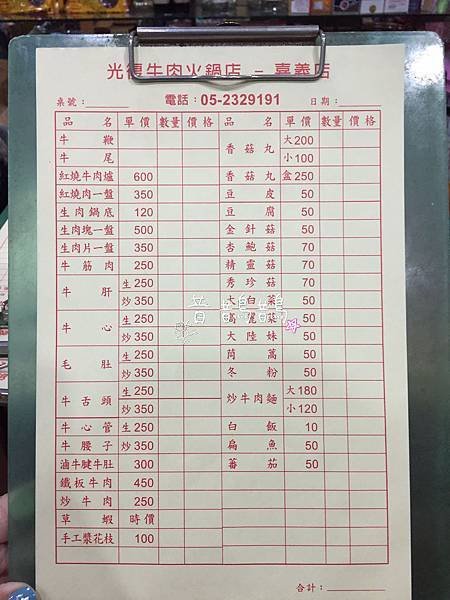 光得牛肉火鍋店 - 嘉義店
桌號： 電話：05-2329191 日期：
品名 單價 數量 價格 品名 單價 數量 價格
牛鞭 香菇丸 大200
牛尾 小100
紅燒牛肉爐 600 香菇丸 盒250
紅燒肉一盤 350 豆皮 50
生肉鍋底 120 豆腐 50
生肉塊一盤 500 金針菇 50
生肉片一盤 350 杏鮑菇 70
牛筋肉 250 精靈菇 70
牛肝 生250 秀珍菇 70
炒350 大白菜 50
牛心 生250 高麗菜 50
炒350 大陸妹 50
毛肚 生250 茼蒿 50
炒350 冬粉 50
牛舌頭 生250 炒牛肉麵 大180
炒350 小120
牛心管 生250 白飯 10
牛腰子 炒350 扁魚 50
滷牛腱牛肚 300 蕃茄 50
鐵板牛肉 450
炒牛肉 250
草蝦 時價
手工漿花枝 100
合計：